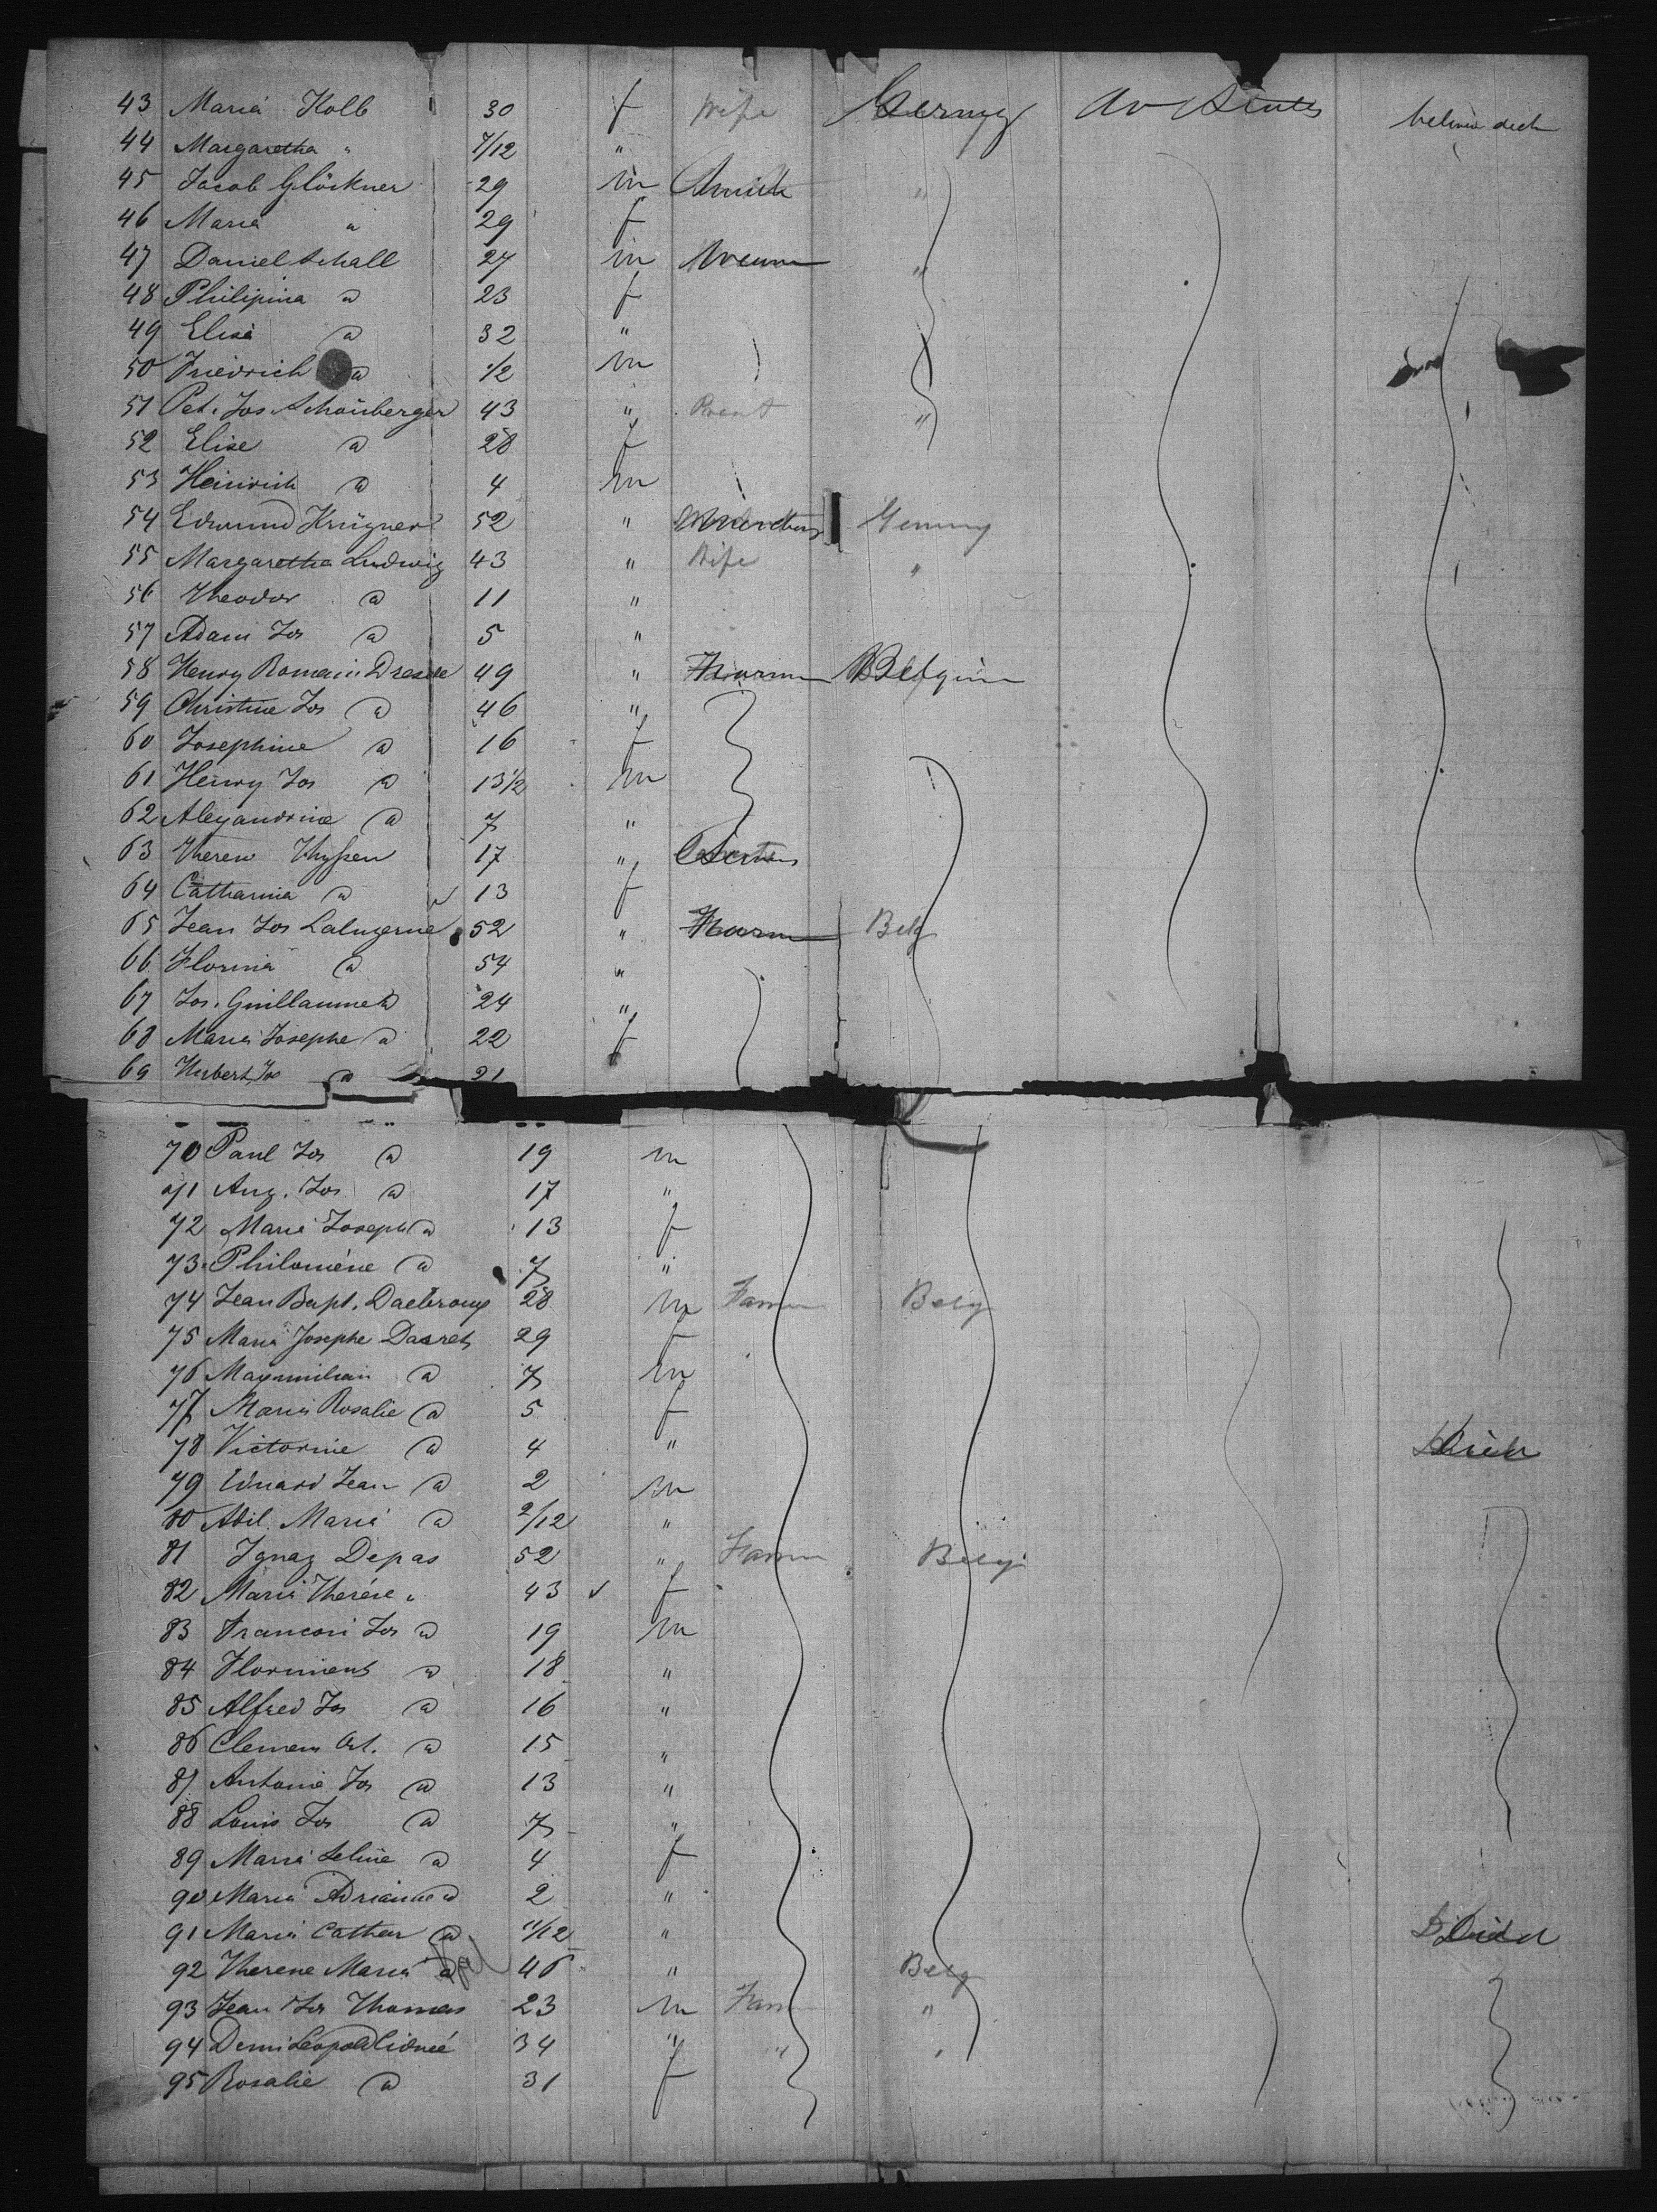 43 Maria Kolb 30 f Wife Germy Un States between deck
44 Margaretha " 7/12 "
45 Jacob Glöckner 29 m Smith "
46 Maria " 29 f
47 Daniel Schall 27 m "
48 Philipina " 23 f
49 Elise " 32 "
50 Friedrich " 1/2 m
51 Pet. Jos. Schönberger 43 " "
52 Elise " 28 f
53 Heinrich " 4 m
54 Edmund Krügner 52 " Germy
55 Margaretha Ludwig 43 " Wife "
56 Theodor " 11 "
57 Adam Jos " 5 "
58 Henry Romain 49 " Farmer Belgium
59 Christine Jos " 46 "
60 Josephine " 16 f
61 Henry Jos " 13 1/2 m
62 Alexandrine " 7 "
63 Thyssen 17 "
64 Catharina " 13 f
65 Jean Jos Laluzerne 52 " Farmer Belg
66 Florina " 54 "
67 Jos. Guillaume " 24 "
68 Maria Josephe " 22 f
69 Hubert Jos " 21
70 Paul Jos " 19 m
71 Aug. Jos " 17 "
72 Maria Joseph " 13 f
73 Philoméne " 7 "
74 Jean Bapt. 28 m Farmer Belg
75 Maria Josephe 29 f
76 Maximilian " 7 m
77 Maria Rosalie " 5 f
78 Victorine " 4 "
79 Eduard Jean " 2 m
80 Adil. Maria " 2/12 "
81 Ignaz Depas 52 " Farmer Belg
82 Maria Therése " 43 f
83 Francois Jos " 19 m
84 Florimens " 18 "
85 Alfred Jos " 16 "
86 Clemens " 15 "
87 Antonie Jos " 13 "
88 Louis Jos " 7 "
89 Maria Seline " 4 f
90 Maria Adrianne " 2 "
91 Maria Cathar " 11/12 "
92 Therene Maria " 46 " Belg
93 Jean Jos Thomas 23 m Farmer "
94 Leopold 34 " " "
95 Rosalie " 31 f